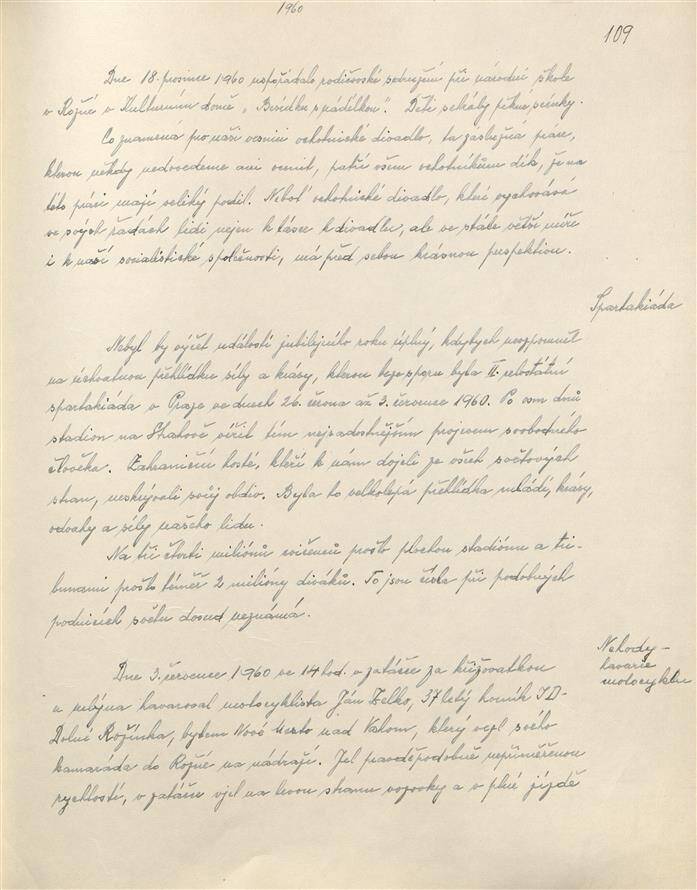 1960
109
Dne 18. prosince 1960 uspořádalo rodičovské sdružení při národní škole
v Rožné v Kulturním domě „Besídku s nadílkou". Děti sehrály pěkné scénky.
Co znamená pro naši vesnici ochotnické divadlo, ta záslužná práce,
kterou někdy nedovedeme ani ocenit, patří všem ochotníkům dík, že na
této práci mají veliký podíl. Neboť ochotnické divadlo, které vychovává
ve svých řadách lidi nejen k lásce k divadlu, ale ve stále větší míře
i k naší socialistické společnosti, má před sebou krásnou perspektivu.
Spartakiáda
Nebyl by výčet událostí jubilejního roku úplný, kdybych nevzpomněl
na úchvatnou přehlídku síly a krásy, kterou beze sporu byla II. celostátní
spartakiáda v Praze ve dnech 26. června až 3. července 1960. Po osm dnů
stadion na Strahově vířil tím nejradostnějším projevem svobodného
člověka. Zahraniční hosté, kteří k nám dojeli ze všech světových
stran, neskrývali svůj obdiv. Byla to velkolepá přehlídka mládí, krásy,
odvahy a síly našeho lidu.
Na tři čtvrti miliónů cvičenců prošlo plochou stadiónu a tri-
bunami prošlo téměř 2 milióny diváků. To jsou čísla při podobných
podnicích světu dosud neznámá.
Nehody –
havarie
motocyklu
Dne 3. července 1960 ve 14 hod. v zatáčce za křižovatkou
u mlýna havaroval motocyklista Ján Zelko, 37 letý horník JD-
Dolní Rožínka, bytem Nové Mesto nad Váhom, který vezl svého
kamaráda do Rožné na nádraží. Jel pravděpodobně nepřiměřenou
rychlostí, v zatáčce vjel na levou stranu vozovky a v plné jízdě